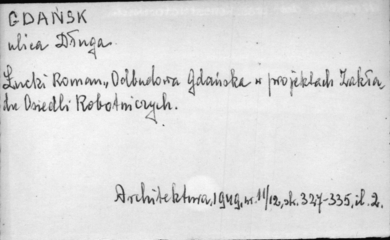 GDAŃSK
ulica Długa.
Łucki Roman, Odbudowa Gdańska w projektach Zakła,
du Osiedli Robotniczych.
Architektura, 1949, nr. 11/12, sk. 327-335, il. 2.